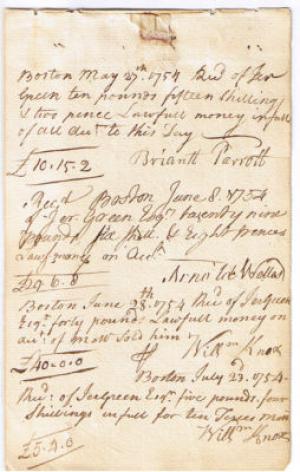 Boston May 27th. 1754 Rec'd of Jer
Green ten pounds fifteen Shilling
& two pence Lawfull money in full
of all acct. to this Day
£10.15.2 Briantt Parrott
Rec'd Boston June 8. 1754
of Jer. Green Esqr. twenty nine
pounds Six Shill. & Eight pence
Law. money on Acct.
£29.6.8 Arnold Welles
Boston June 28th. 1754 Rec'd of Jer Green
Esqr. forty pounds Lawfull money on
acct. of Sold him
£40.0.0 Willm. Knox
Boston July 23. 1754.
Recd. of Jer Green Esqr. five pounds four
Shillings in full for ten
£5.4.0 Willm. Knox